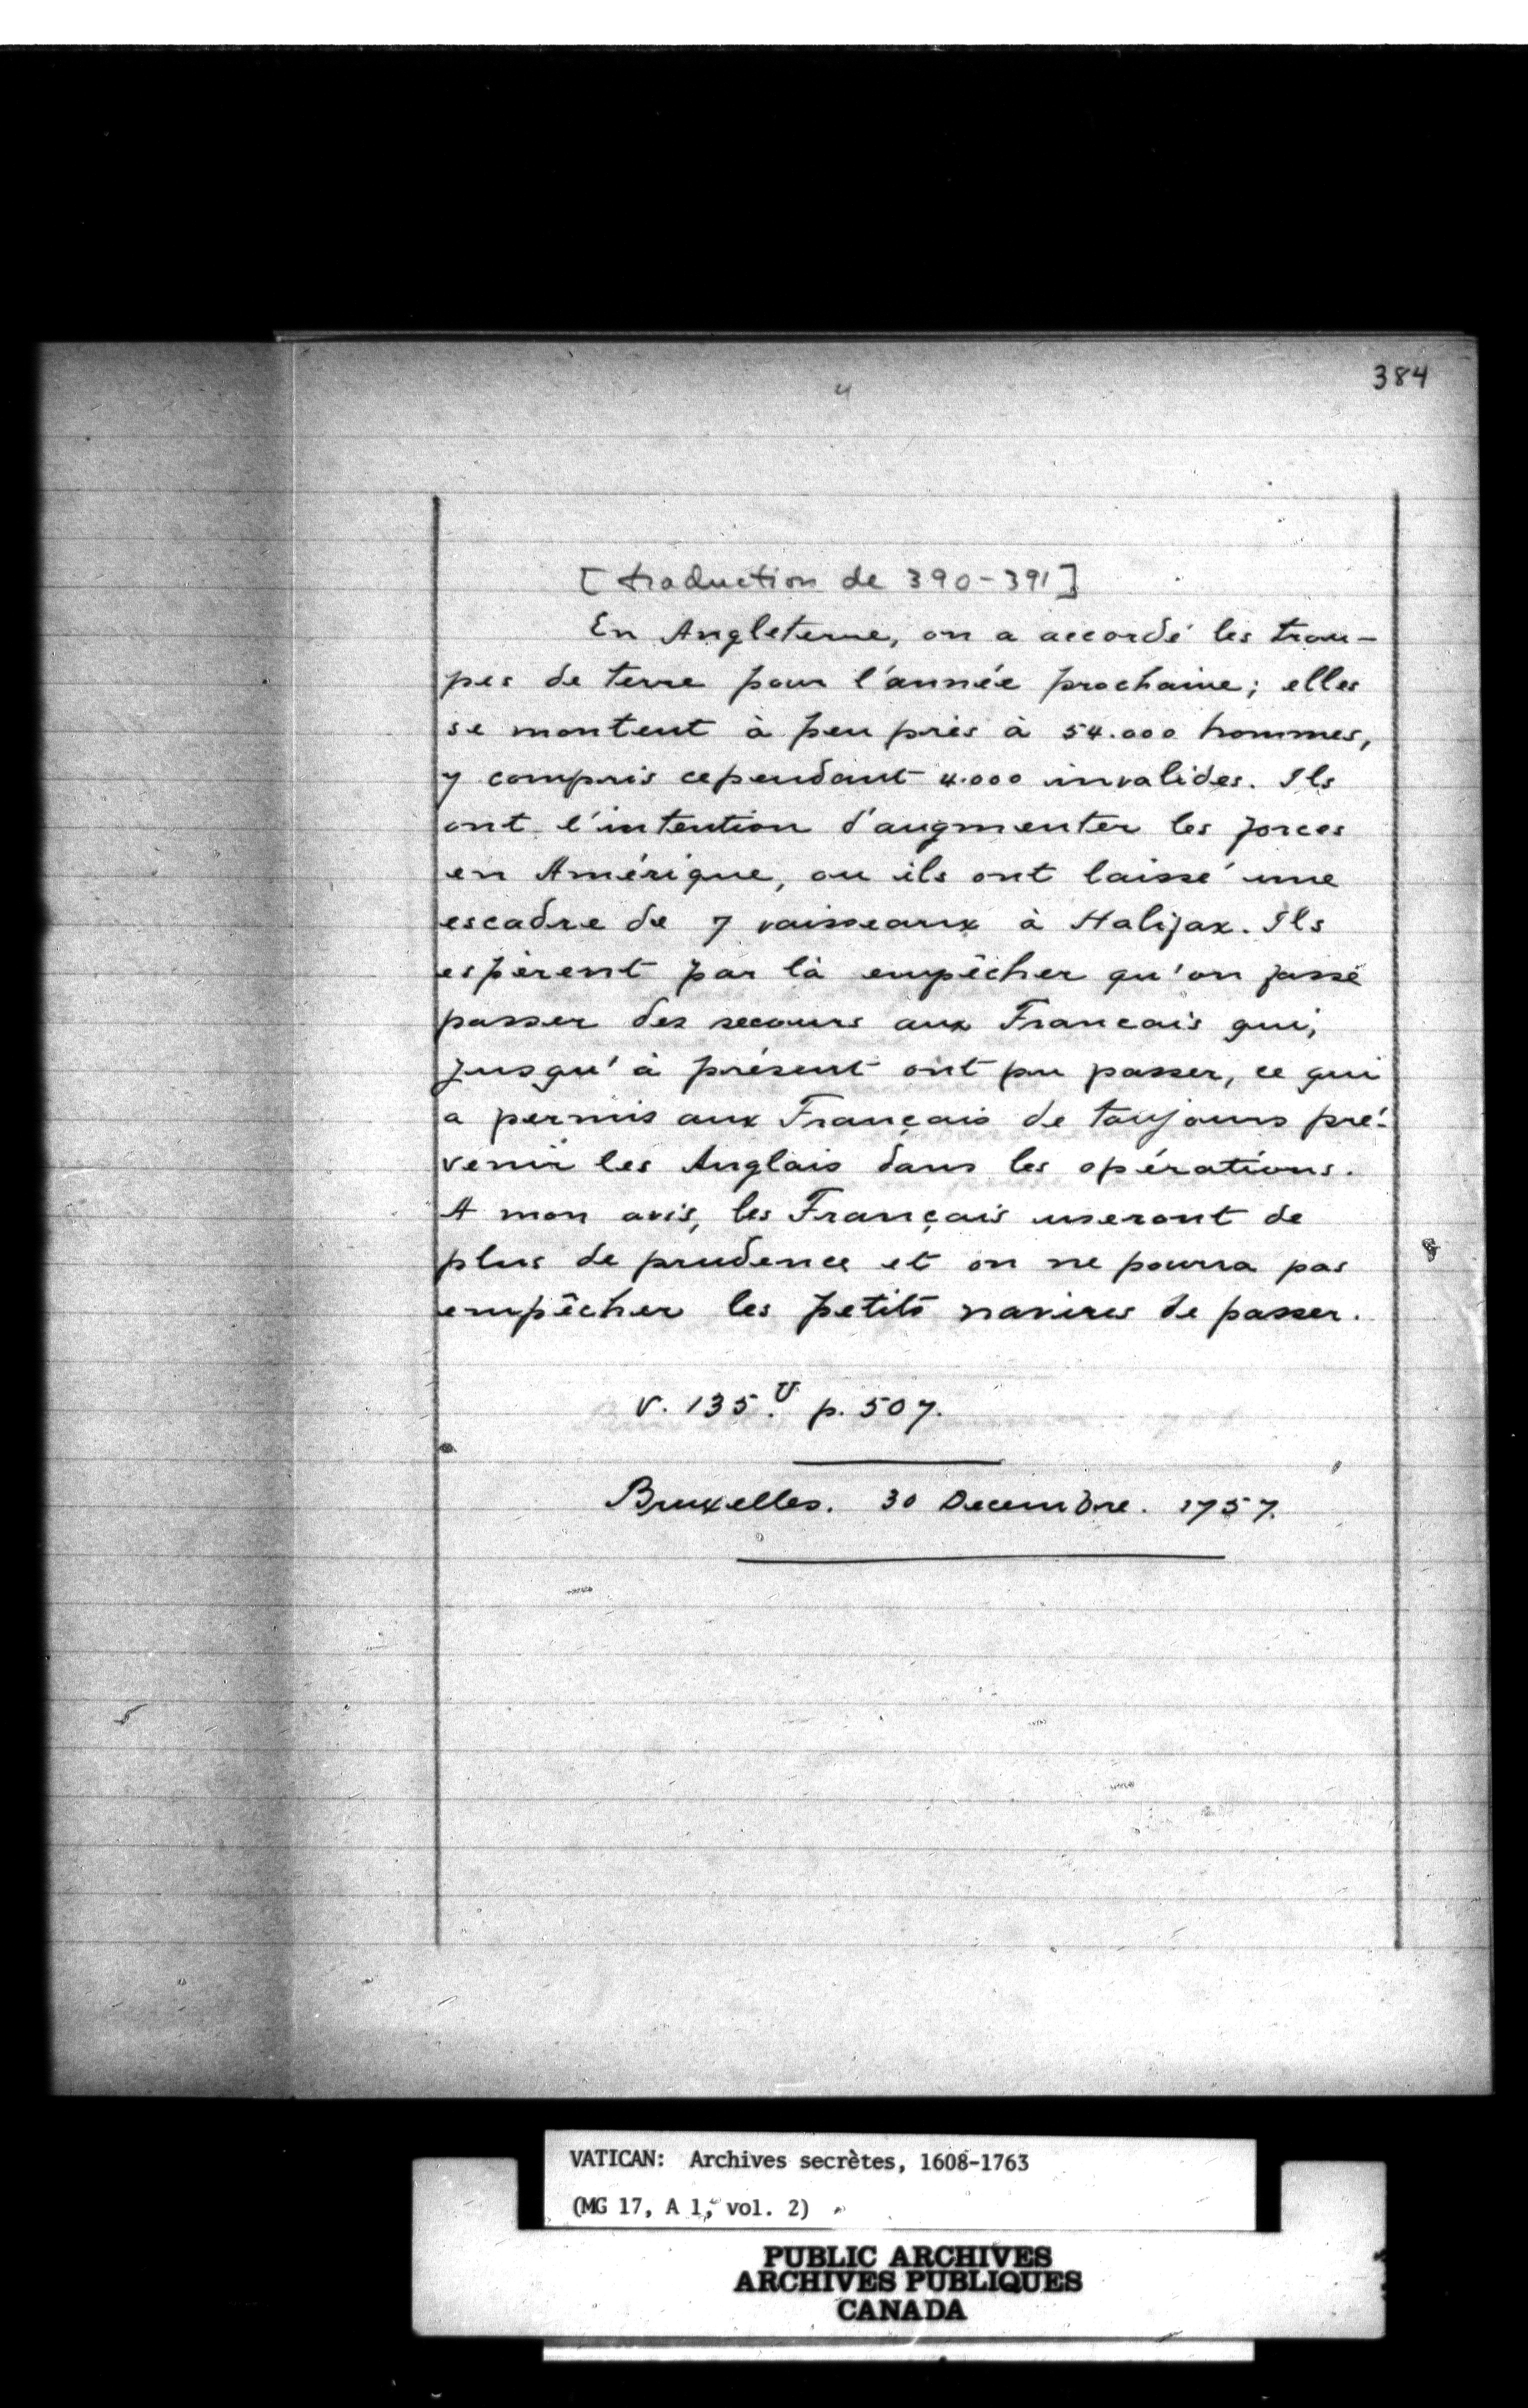 384
4
[traduction de 390-391]
En Angleterre, on a accordé les trou-
pes de terre pour l'année prochaine; elles
se montent à peu près à 54.000 hommes,
y compris cependant 4.000 invalides. Ils
ont l'intention d'augmenter les forces
en Amérique, ou ils ont laissé une
escadre de 7 vaisseaux à Halifax. Ils
espèrent par là empêcher qu'on fasse
passer des secours aux Francais qui,
jusqu'à présent ont pu passer, ce qui
a permis aux Français de toujours pré-
venir les Anglais dans les opérations.
A mon avis, les Français useront de
plus de prudence et on ne pourra pas
empêcher les petits navires de passer.
V. 135.U p. 507.
Bruxelles. 30 Decembre. 1757.
VATICAN: Archives secrètes, 1608-1763
(MG 17, A 1, vol. 2)
PUBLIC ARCHIVES
ARCHIVES PUBLIQUES
CANADA